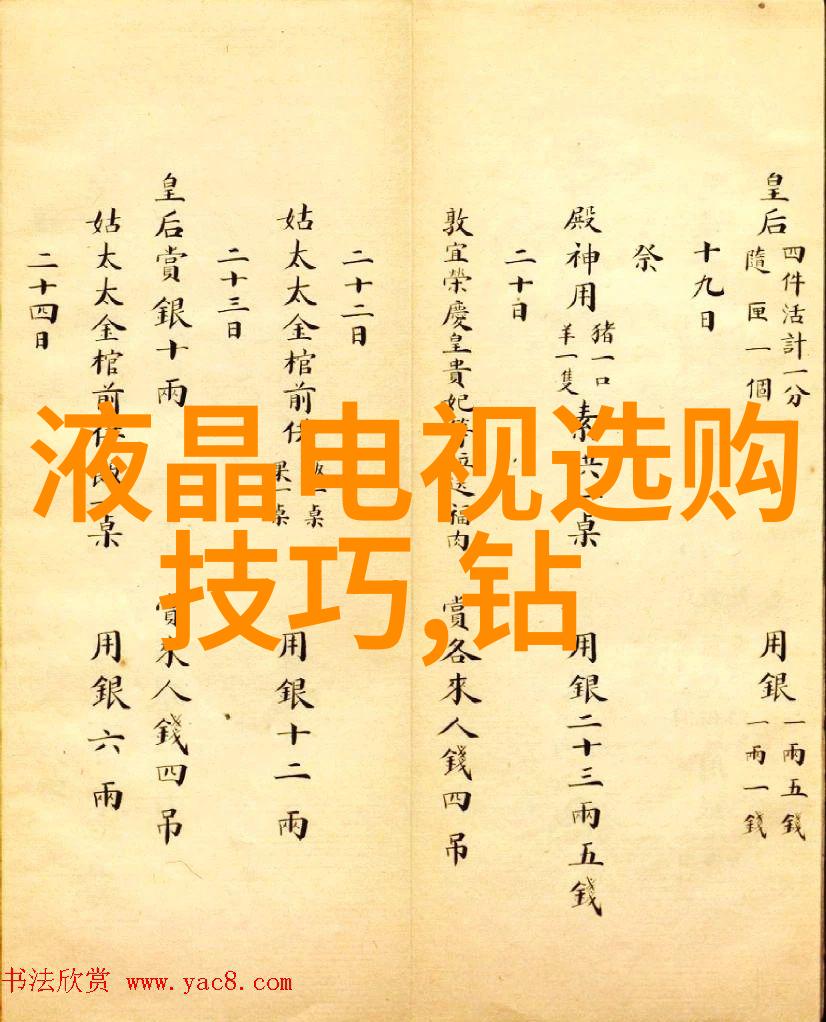 皇后 四件活計一分 隨匣一個 用銀 一兩五錢 一兩一錢
十九日
祭
殿神用 豬一口 羊一隻 素供一桌 用銀二十三兩五錢
二十日
敦宜榮慶皇貴妃等位送福肉 賞各來人錢四吊
二十二日
姑太太金棺前供 飯一桌 果一桌 用銀十二兩
二十三日
皇后賞銀十兩 賞來人錢四吊
姑太太金棺前供 一桌 用銀六兩
二十四日
液晶电视选购
技巧,钻
书法欣赏 www.yac8.com